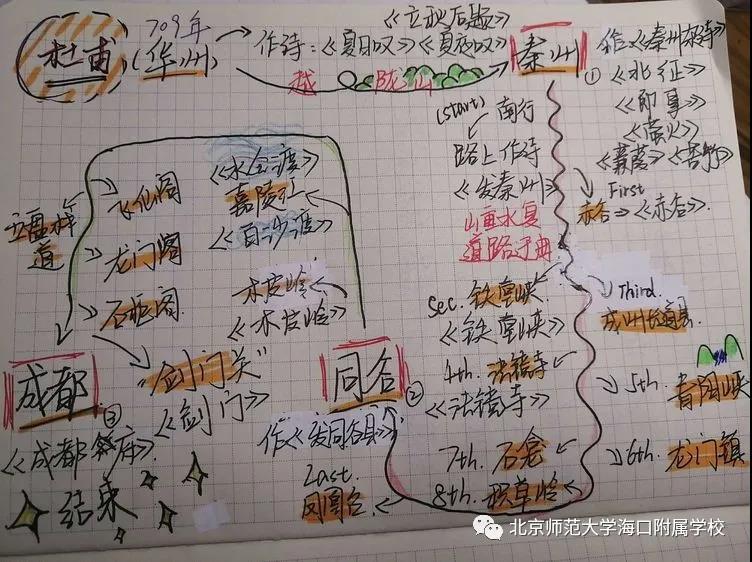 杜甫
709年
(华州)
作诗:《夏日叹》《夏夜叹》
《立秋后题》
越 陇山
秦州
①
《北征》
《即事》
《萤火》
《蒹葭》《苦竹》
(start) 南行
路上作诗
《发秦州》
山重水复
道路
First
赤谷⇒《赤谷》.
Sec. 铁堂峡
《铁堂峡》
Third.
4th. 法镜寺
《法镜寺》
5th. 青阳峡
6th. 龙门镇
7th. 石龛
8th. 积草岭
Last
凤凰台
同谷
②
作《发同谷县》
木皮岭
《木皮岭》
《水会渡》
嘉陵江
《白沙渡》
飞仙阁
龙门阁
石柜阁
道
"剑门关"
《剑门》
成都
③
《成都府》.
结束
北京师范大学海口附属学校